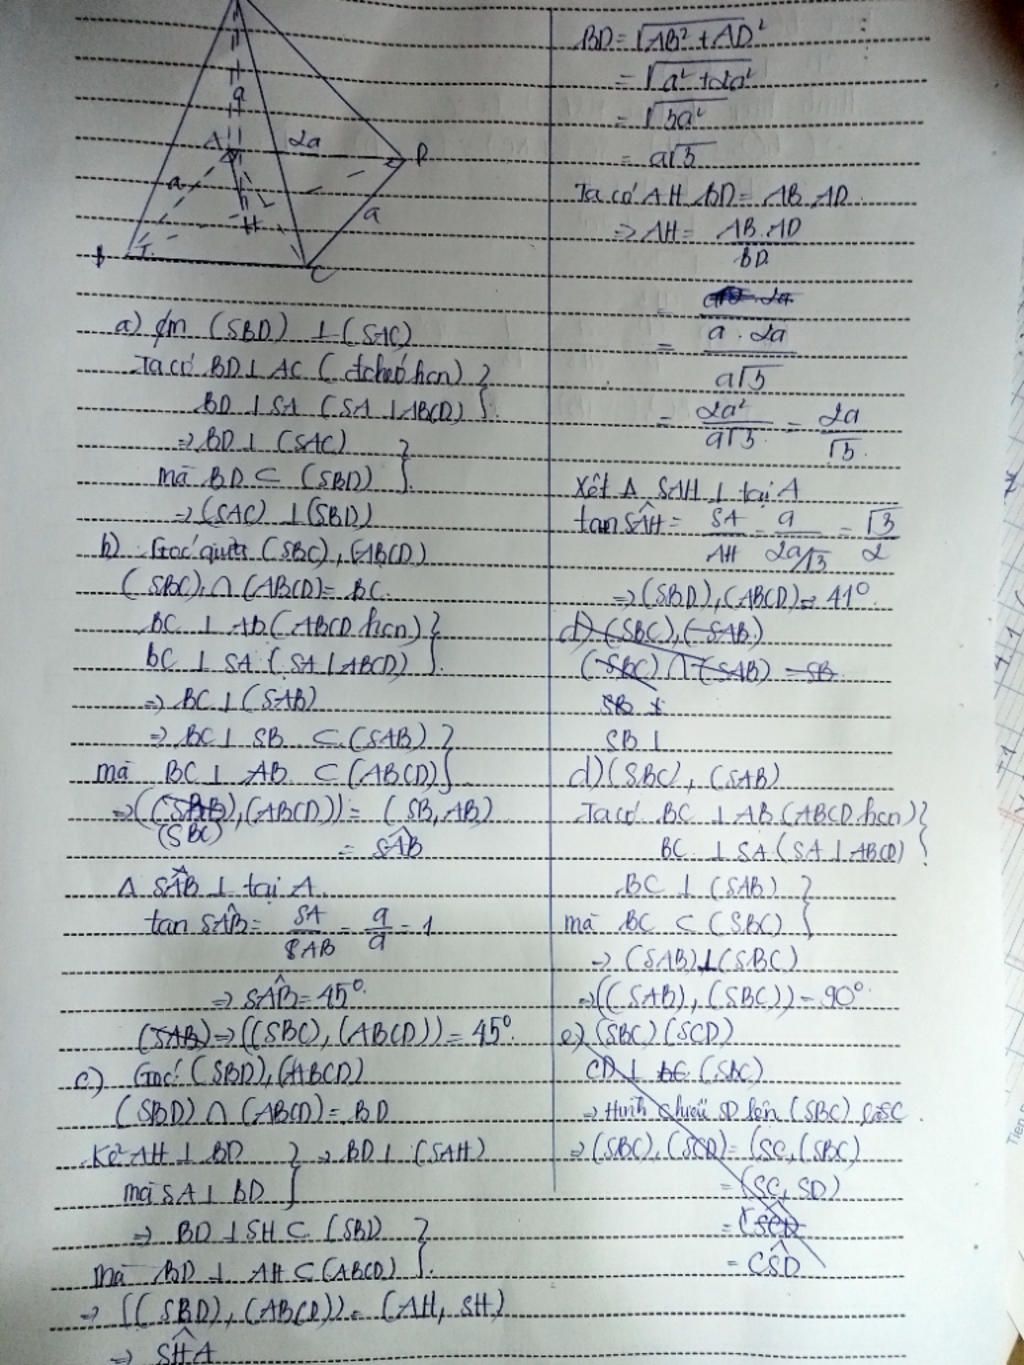 a
A
2a
D
a
H
a
B
C
a) c/m (SBD) ⊥ (SAC)
Ta có BD ⊥ AC (đchéo hcn)
BD ⊥ SA (SA ⊥ ABCD)
⇒ BD ⊥ (SAC)
mà BD ⊂ (SBD)
⇒ (SAC) ⊥ (SBD)
b) Góc giữa (SBC), (ABCD)
(SBC) ∩ (ABCD) = BC.
BC ⊥ AB (ABCD hcn)
BC ⊥ SA (SA ⊥ ABCD)
⇒ BC ⊥ (SAB)
⇒ BC ⊥ SB ⊂ (SAB)
mà BC ⊥ AB ⊂ (ABCD)
⇒ ((SAB), (ABCD)) = (SB, AB)
(SBC)
= SAB
Δ SAB ⊥ tại A.
tan SAB = SA/SAB = a/a = 1
⇒ SAB = 45°.
(SAB) ⇒ ((SBC), (ABCD)) = 45°.
c) Góc (SBD), (ABCD)
(SBD) ∩ (ABCD) = BD
Kẻ AH ⊥ BD ⇒ BD ⊥ (SAH)
mà SA ⊥ BD
⇒ BD ⊥ SH ⊂ (SBD)
mà BD ⊥ AH ⊂ (ABCD)
⇒ ((SBD), (ABCD)) = (AH, SH)
⇒ SHA
BD = √AB² + AD²
= √a² + 2a²
= √3a²
= a√3
Ta có AH . BD = AB . AD
⇒ AH = AB . AD / BD
= 2a
= a . 2a / a√3
= 2a² / a√3 = 2a / √3.
Xét Δ SAH ⊥ tại A
tan SAH = SA/AH = a / 2a/√3 = √3/2
⇒ (SBD), (ABCD) = 41°.
d) (SBC), (SAB)
(SBC) ∩ (SAB) = SB
SB ⊥
SB ⊥
d) (SBC), (SAB)
Ta có BC ⊥ AB (ABCD hcn)
BC ⊥ SA (SA ⊥ ABCD)
BC ⊥ (SAB)
mà BC ⊂ (SBC)
⇒ (SAB) ⊥ (SBC)
⇒ ((SAB), (SBC)) = 90°
e) (SBC) (SCD)
CD ⊥ BC (SBC)
⇒ Hình chiếu SD lên (SBC) là SC.
⇒ (SBC), (SCD) = (SC, (SBC)
= (SC, SD)
= (SCD
= CSD
Tiên